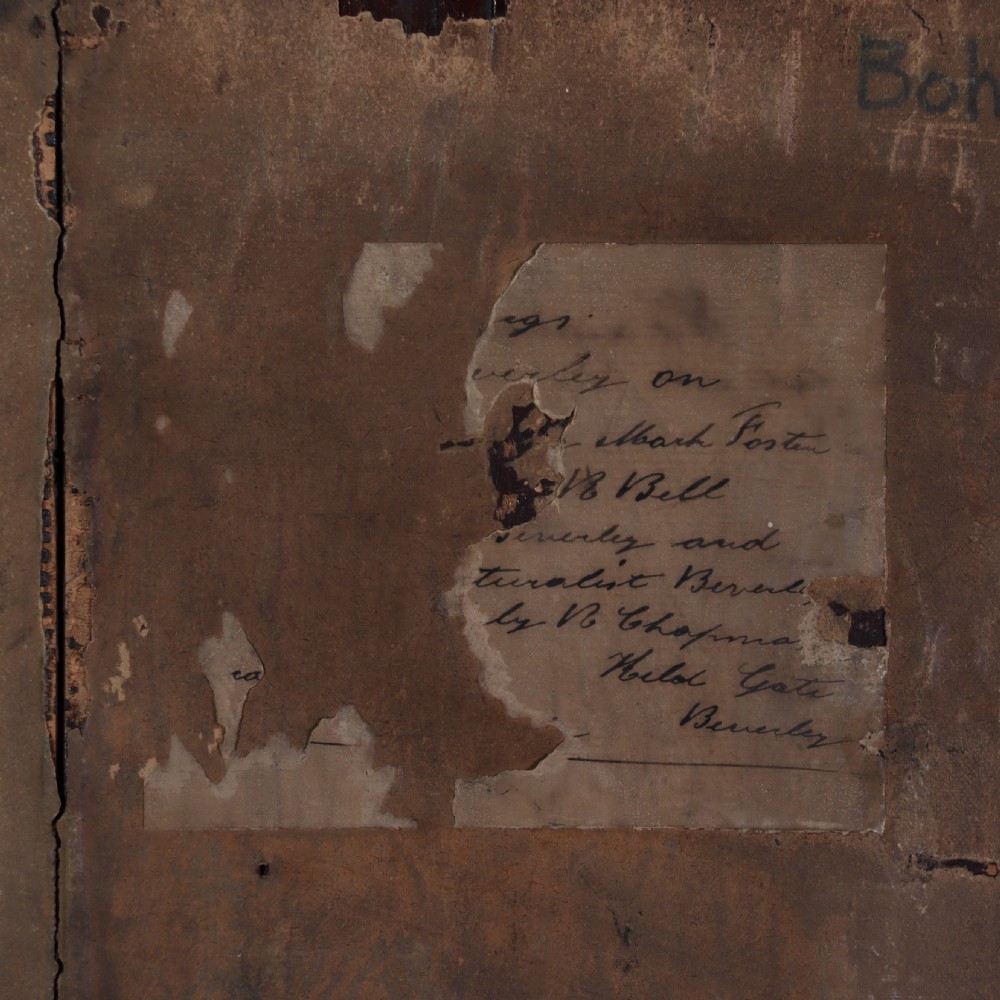 Boh
egs.
verley on
Mark Foster
R Bell
Beverley and
turalist Beverle
by R Chapma
Held Gate
Beverley
ea